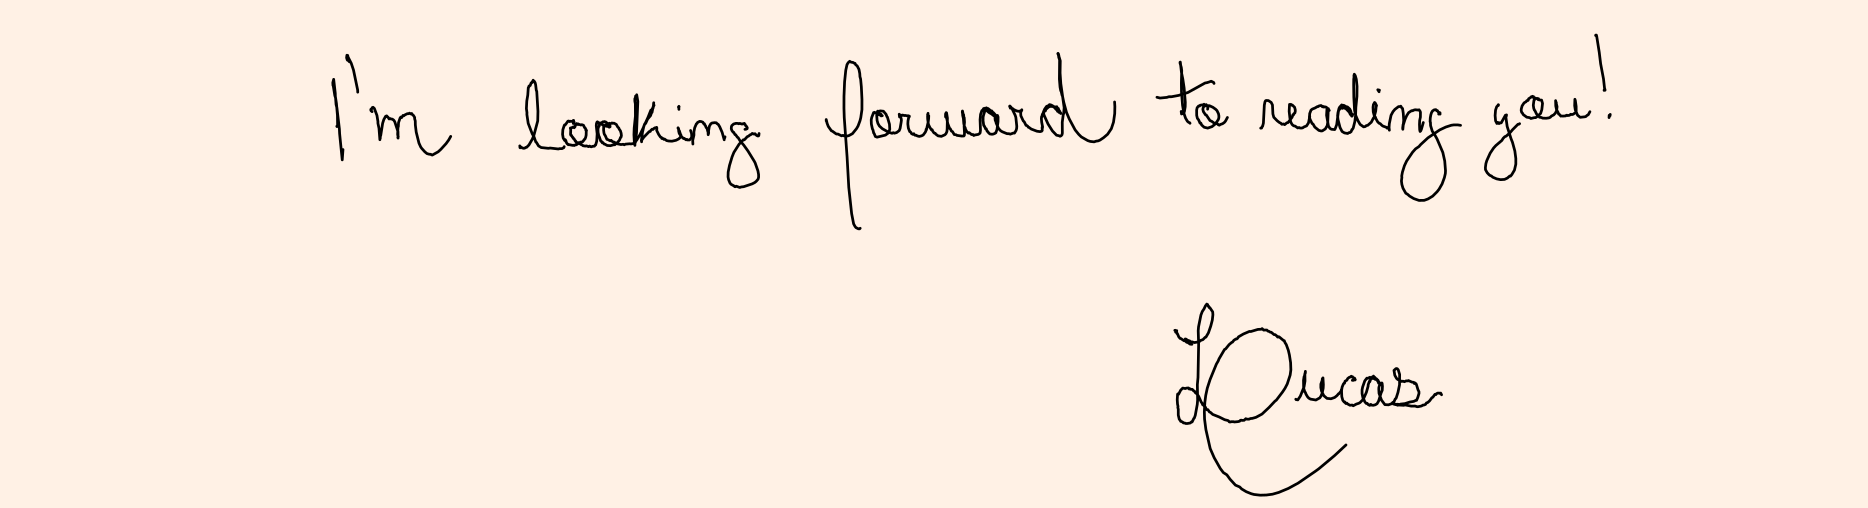 I'm looking forward to reading you!
Lucas